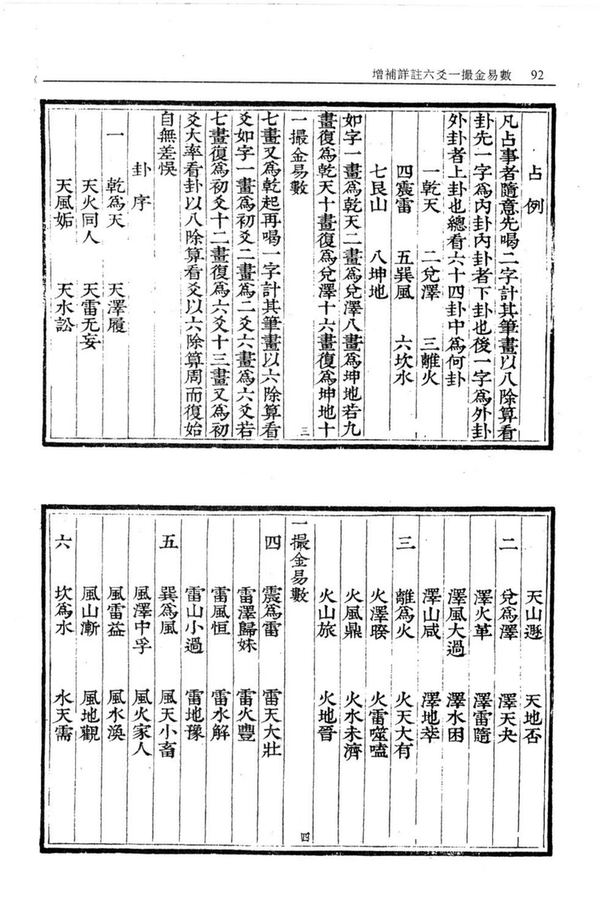 增補詳註六爻一撮金易數 92
占例
凡占事者隨意先喝二字計其筆畫以八除算看
卦先一字爲內卦內卦者下卦也後一字爲外卦
外卦者上卦也總看六十四卦中爲何卦
一乾天 二兌澤 三離火
四震雷 五巽風 六坎水
七艮山 八坤地
如字一畫爲乾天二畫爲兌澤八畫爲坤地若九
畫復爲乾天十畫復爲兌澤十六畫復爲坤地十
一撮金易數 三
七畫又爲乾起再喝一字計其筆畫以六除算看
爻如字一畫爲初爻二畫爲二爻六畫爲六爻若
七畫復爲初爻十二畫復爲六爻十三畫又爲初
爻大率看卦以八除算看爻以六除算周而復始
自無差悞
卦序
一 乾爲天 天澤履
天火同人 天雷无妄
天風姤 天水訟
天山遯 天地否
二 兌爲澤 澤天夬
澤火革 澤雷隨
澤風大過 澤水困
澤山咸 澤地萃
三 離爲火 火天大有
火澤睽 火雷噬嗑
火風鼎 火水未濟
火山旅 火地晉
一撮金易數 四
四 震爲雷 雷天大壯
雷澤歸妹 雷火豐
雷風恒 雷水解
雷山小過 雷地豫
五 巽爲風 風天小畜
風澤中孚 風火家人
風雷益 風水渙
風山漸 風地觀
六 坎爲水 水天需